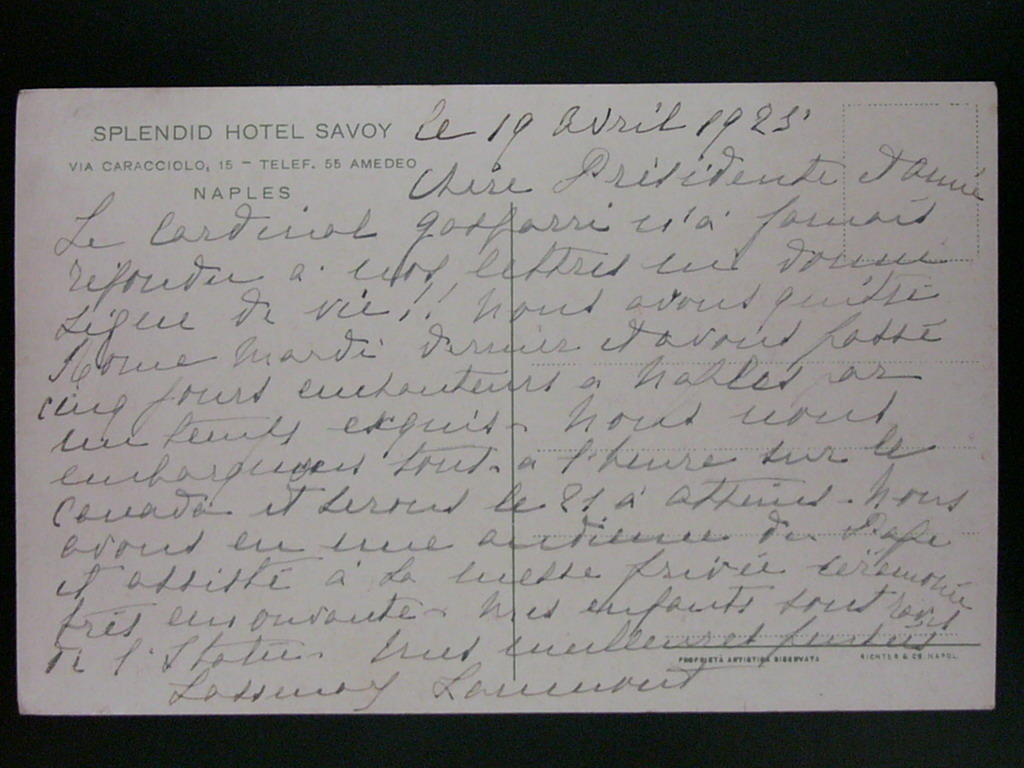 SPLENDID HOTEL SAVOY
VIA CARACCIOLO, 15 – TELEF. 55 AMEDEO
NAPLES
le 19 avril 1925
Chère Présidente et amie
Le Cardinal gasparri n'a jamais
répondu à nos lettres ni donné
signe de vie!! Nous avons quitté
Rome Mardi dernier et avons passé
cinq jours enchanteurs a Naples par
un temps exquis. Nous nous
embarquons tout a l'heure sur le
Canada et serons le 21 à athènes. Nous
avons eu une audience du Pape
et assisté à la messe privée cérémonie
très émouvante. Mes enfants sont ravis
de l'Italie. Mes meilleures
PROPRIETÀ ARTISTICA RISERVATA
RICHTER & Co. NAPOL.